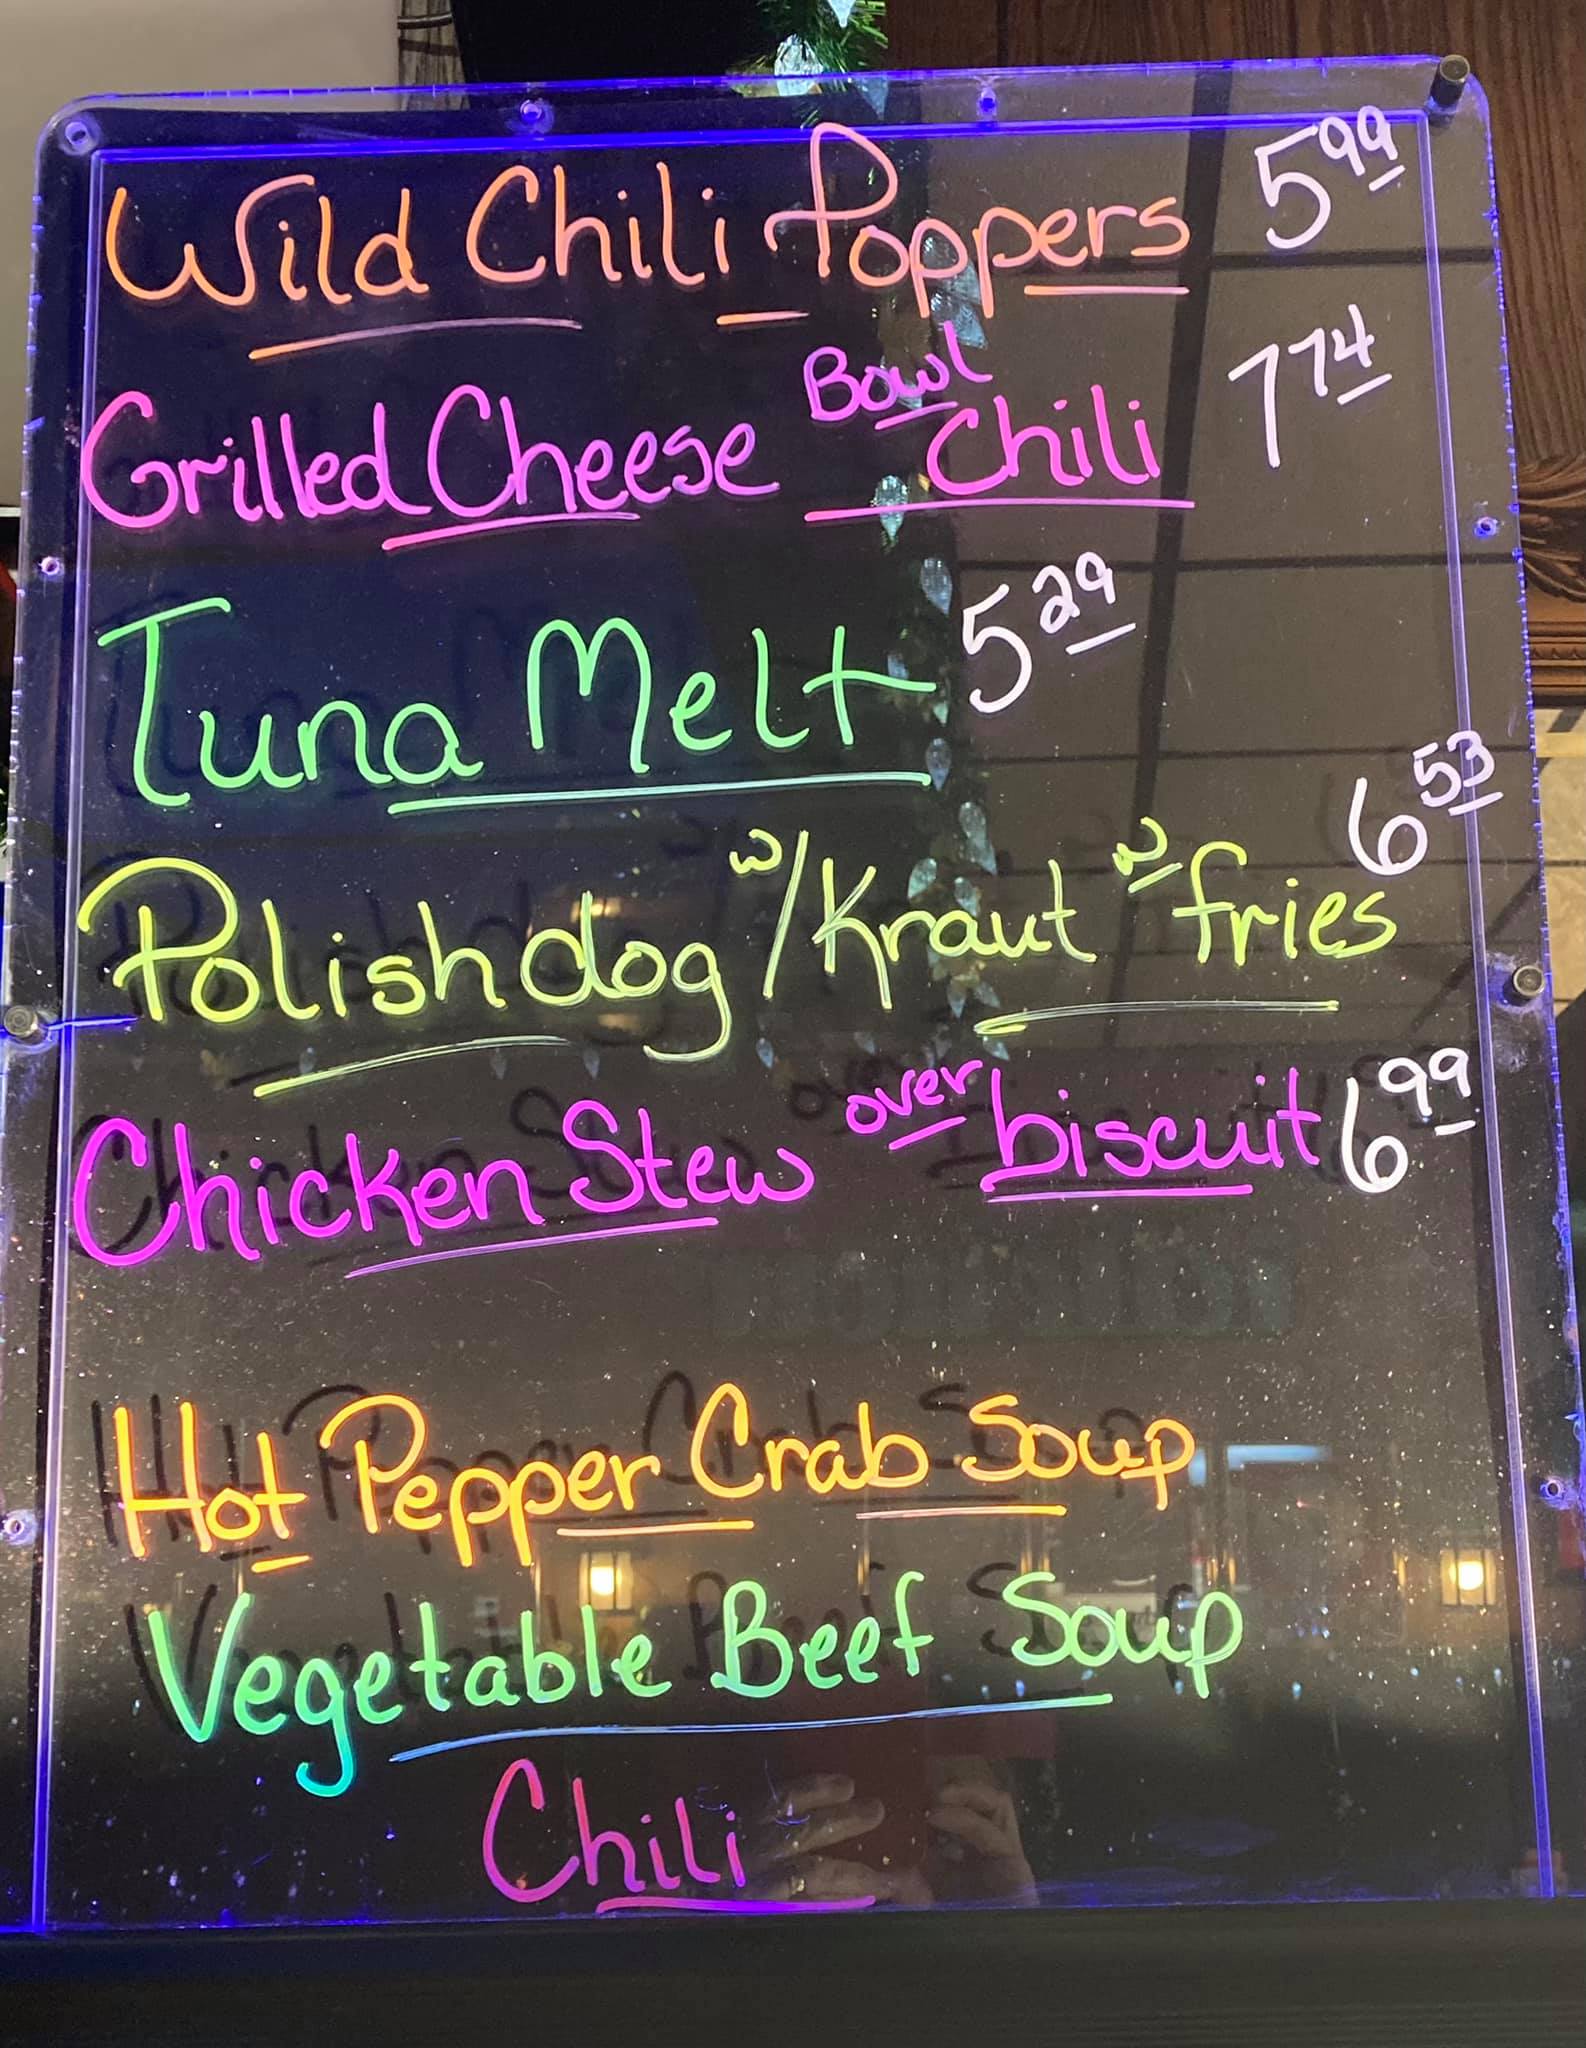 Wild Chili Poppers 5 99
Grilled Cheese Bowl Chili 7 74
Tuna Melt 5 29
Polish dog w/ Kraut w fries 6 53
Chicken Stew over biscuit 6 99
Hot Pepper Crab Soup
Vegetable Beef Soup
Chili